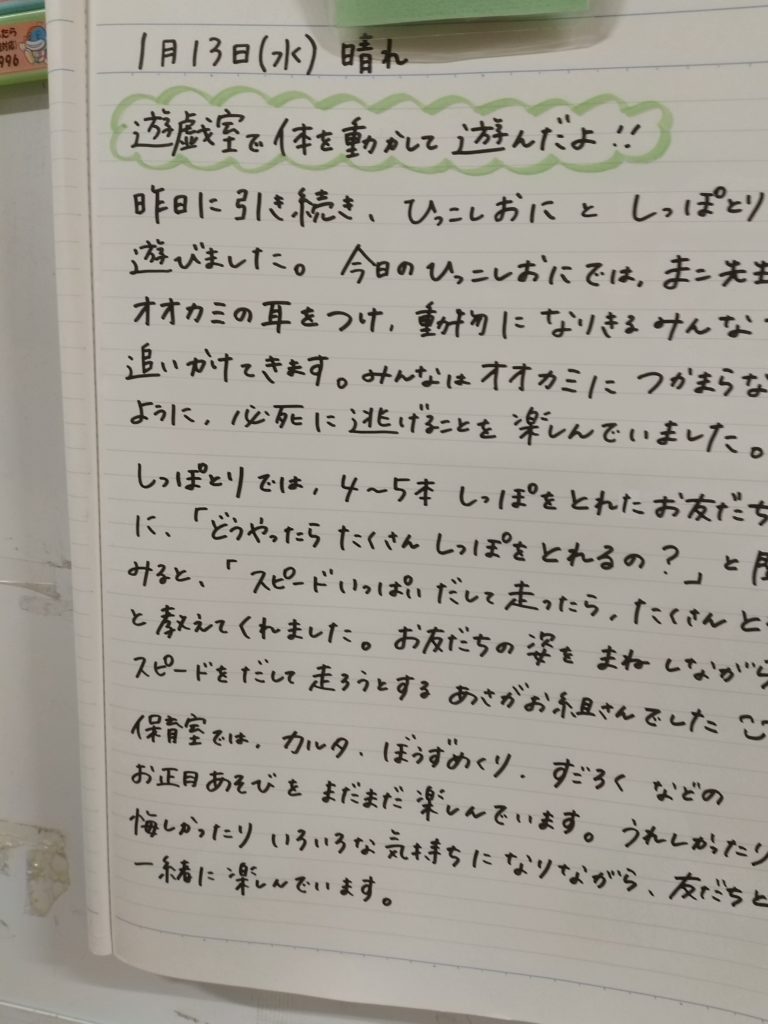 たら
996
1月13日(水) 晴れ
遊戯室で体を動かして遊んだよ!!
昨日に引き続き、ひっこしおにとしっぽとり
遊びました。今日のひっこしおにでは、まこ先生
オオカミの耳をつけ、動物になりきるみんな
追いかけてきます。みんなはオオカミにつかまらな
ように、必死に逃げることを楽しんでいました。
しっぽとりでは、4〜5本しっぽをとれたお友だち
に、「どうやったらたくさんしっぽをとれるの?」と
みると、「スピードいっぱいだして走ったら、たくさんと
と教えてくれました。お友だちの姿をまねしながら
スピードをだして走ろうとするあさがお組さんでした
保育室では、カルタ、ぼうずめくり、すごろくなどの
お正月あそびをまだまだ楽しんでいます。うれしかったり
悔しかったりいろいろな気持ちになりながら、友だちと
一緒に楽しんでいます。